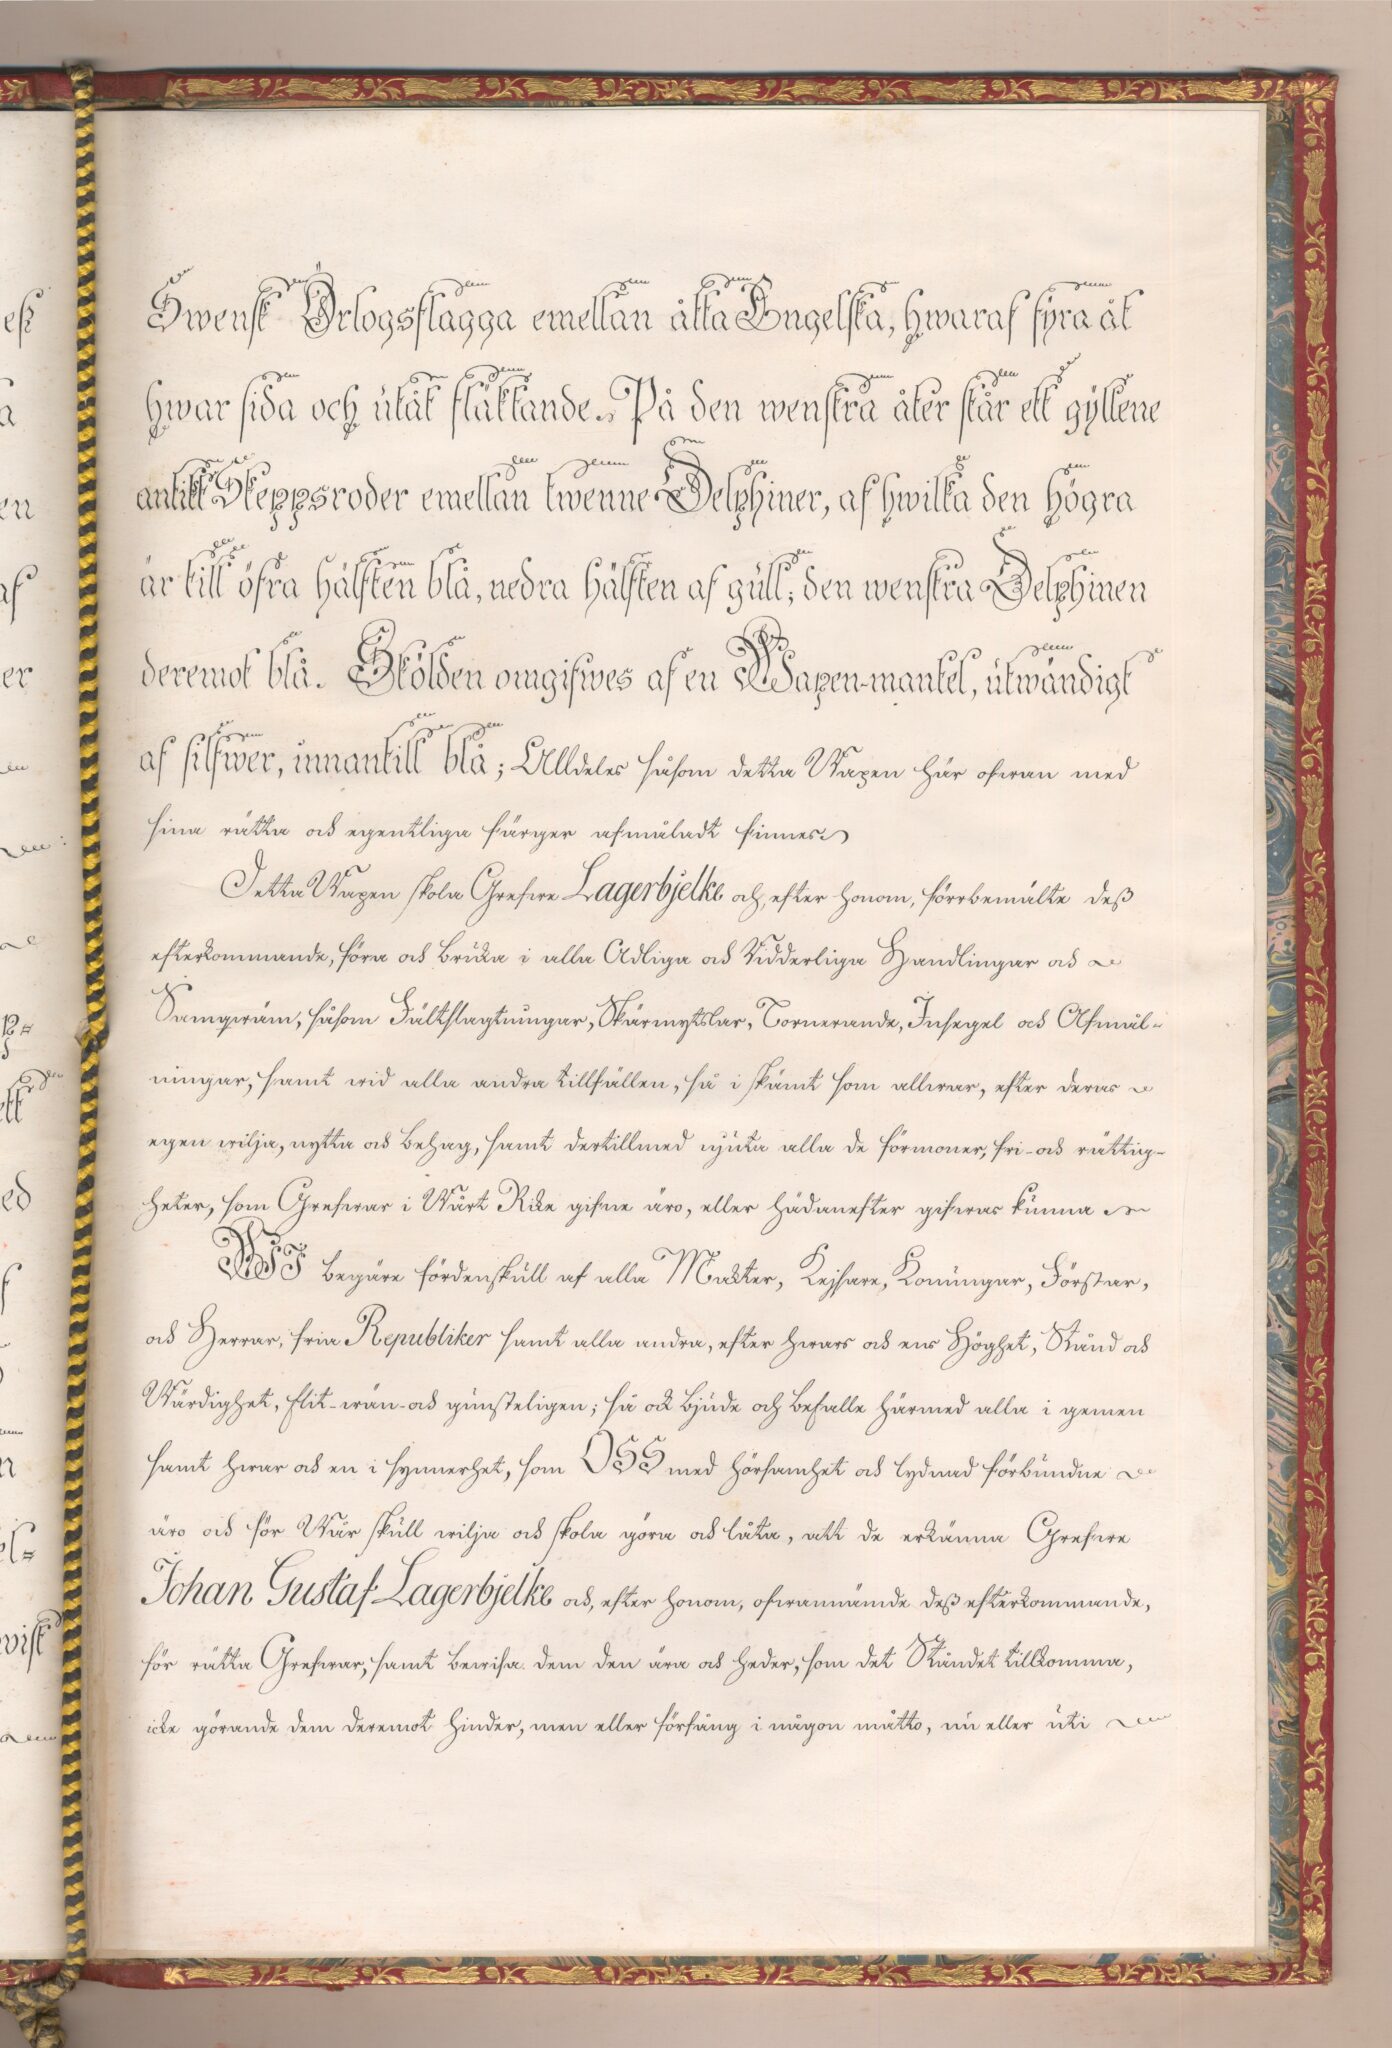 Swensk Örlogsflagga emellan åtta Engelska, hwaraf fyra åt
hwar sida och utåt fläktande. På den wenstra åter står ett gyllene
antikt Skeppsroder emellan twenne Delphiner, af hwilka den högra
är till öfra hälften blå, nedra hälften af gull; den wenstra Delphinen
deremot blå. Skölden omgifwes af en Wapen-mantel, utwändigt
af silfwer, innantill blå; Alldeles såsom detta Wapen här ofwan med
sina rätta och egentliga färger afmåladt finnes.
Detta Wapen skola Grefwe Lagerbjelke och, efter honom, förrbemälte deß
efterkommande, föra och bruka i alla Adliga och Ridderliga Handlingar och
Samqwäm, såsom Fältslagtningar, Skärmytslar, Tornerande, Insegel och Afmål-
ningar, samt wid alla andra tillfällen, så i skämt som allwar, efter deras
egen wilja, nytta och behag, samt dertillmed njuta alla de förmoner, fri- och rättig-
heter, som Grefwar i Wårt Rike gifne äro, eller hädanefter gifwas kunna
WJ begäre fördenskull af alla Makter, Kejsare, Konungar, Förstar,
och Herrar, fria Republiker samt alla andra, efter hwars och ens Höghet, Stånd och
Wärdighet, flit- wän- och gunsteligen; så ock bjude och befalle härmed alla i gemen
samt hwar och en i synnerhet, som OSS med hörsamhet och lydnad förbundne
äro och för Wår skull wilja och skola göra och låta, att de erkänna Grefwe
Johan Gustaf Lagerbjelke och, efter honom, ofwannämde deß efterkommande,
för rätta Grefwar, samt bewisa dem den ära och heder, som det Ståndet tillkomma,
icke görande dem deremot hinder, men eller förfång i någon måtto, nu eller uti
eß
a
en
af
er
ed
f
n
el=
wisk